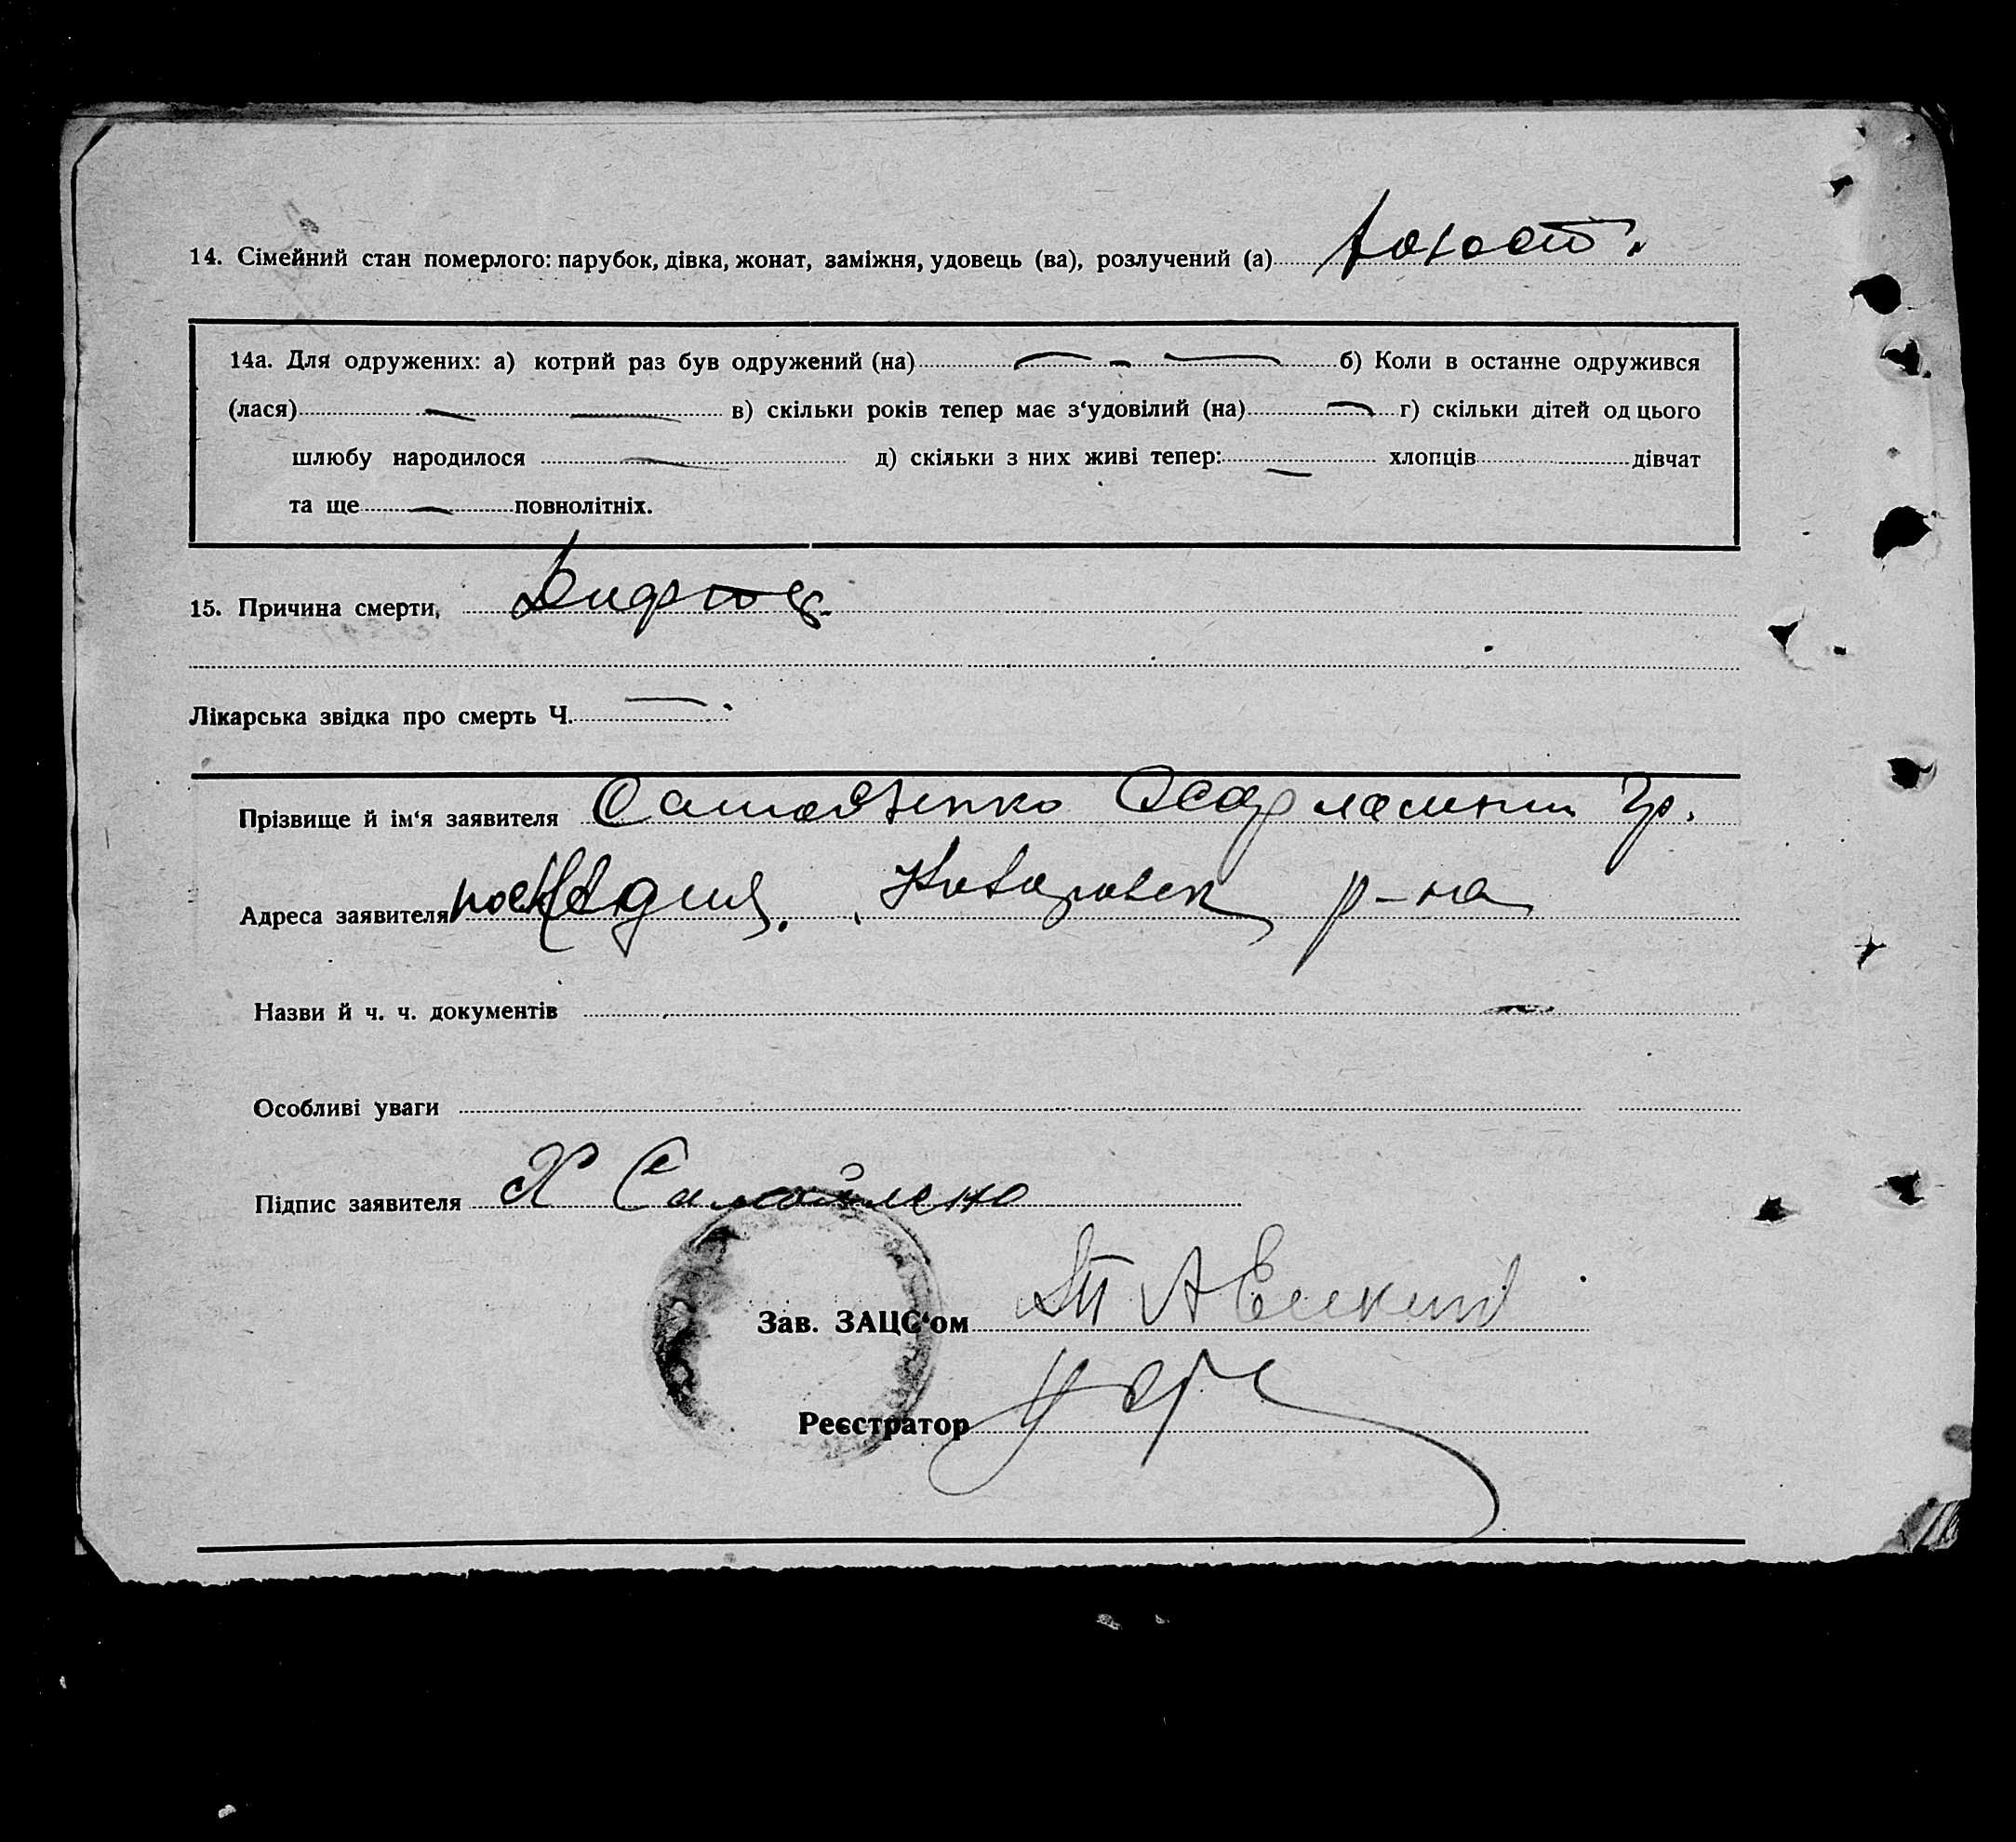 14. Сімейний стан померлого: парубок, дівка, жонат, заміжня, удовець (ва), розлучений (а)
14а. Для одружених: а) котрий раз був одружений (на) б) Коли в останнє одружився
(лася) в) скільки років тепер має з‘удовілий (на) г) скільки дітей од цього
шлюбу народилося д) скільки з них живі тепер: хлопців дівчат
та ще повнолітніх.
15. Причина смерти,
Лікарська звідка про смерть Ч.
Прізвище й ім‘я заявителя Гр.
Адреса заявителя р-на
Назви й ч. ч. документів
Особливі уваги
Підпис заявителя Х Самойлено
Зав. ЗАЦС‘ом
Реєстратор